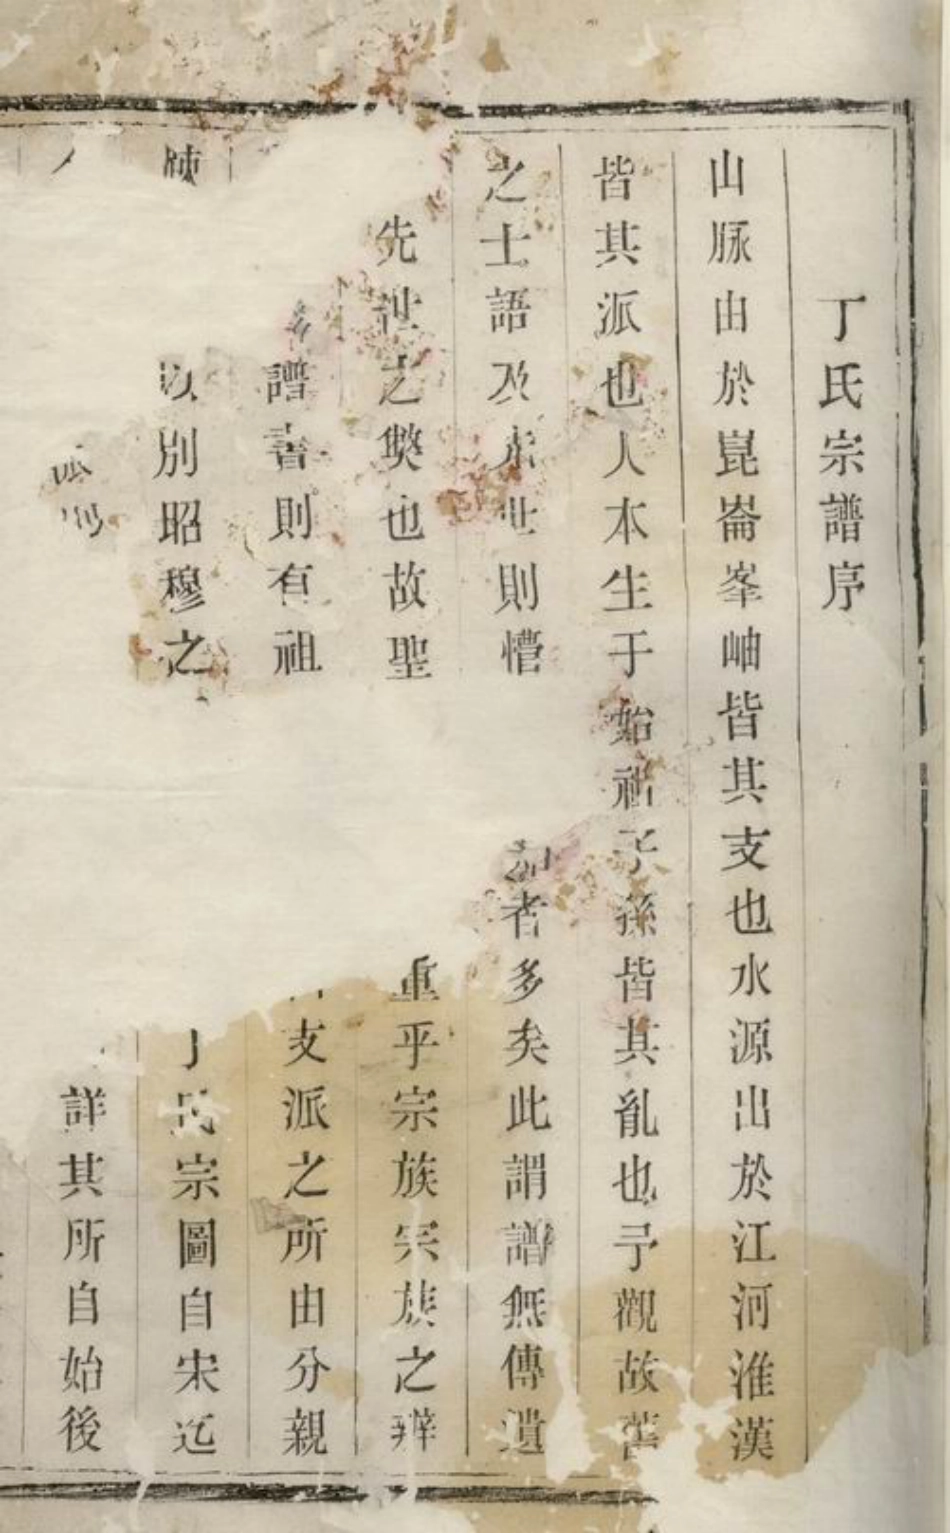 丁氏宗譜序
山脉由於崑崙峯岫皆其支也水源出於江河淮漢
皆其派也人本生于始祖子孫皆其亂也予觀故舊
之士語及先世則懵 者多矣此謂譜無傳遺
先世之獘也故聖 重乎宗族宗族之辨
譜書則有祖 支派之所由分親
以別昭穆之 丁氏宗圖自宋迄
詳其所自始後